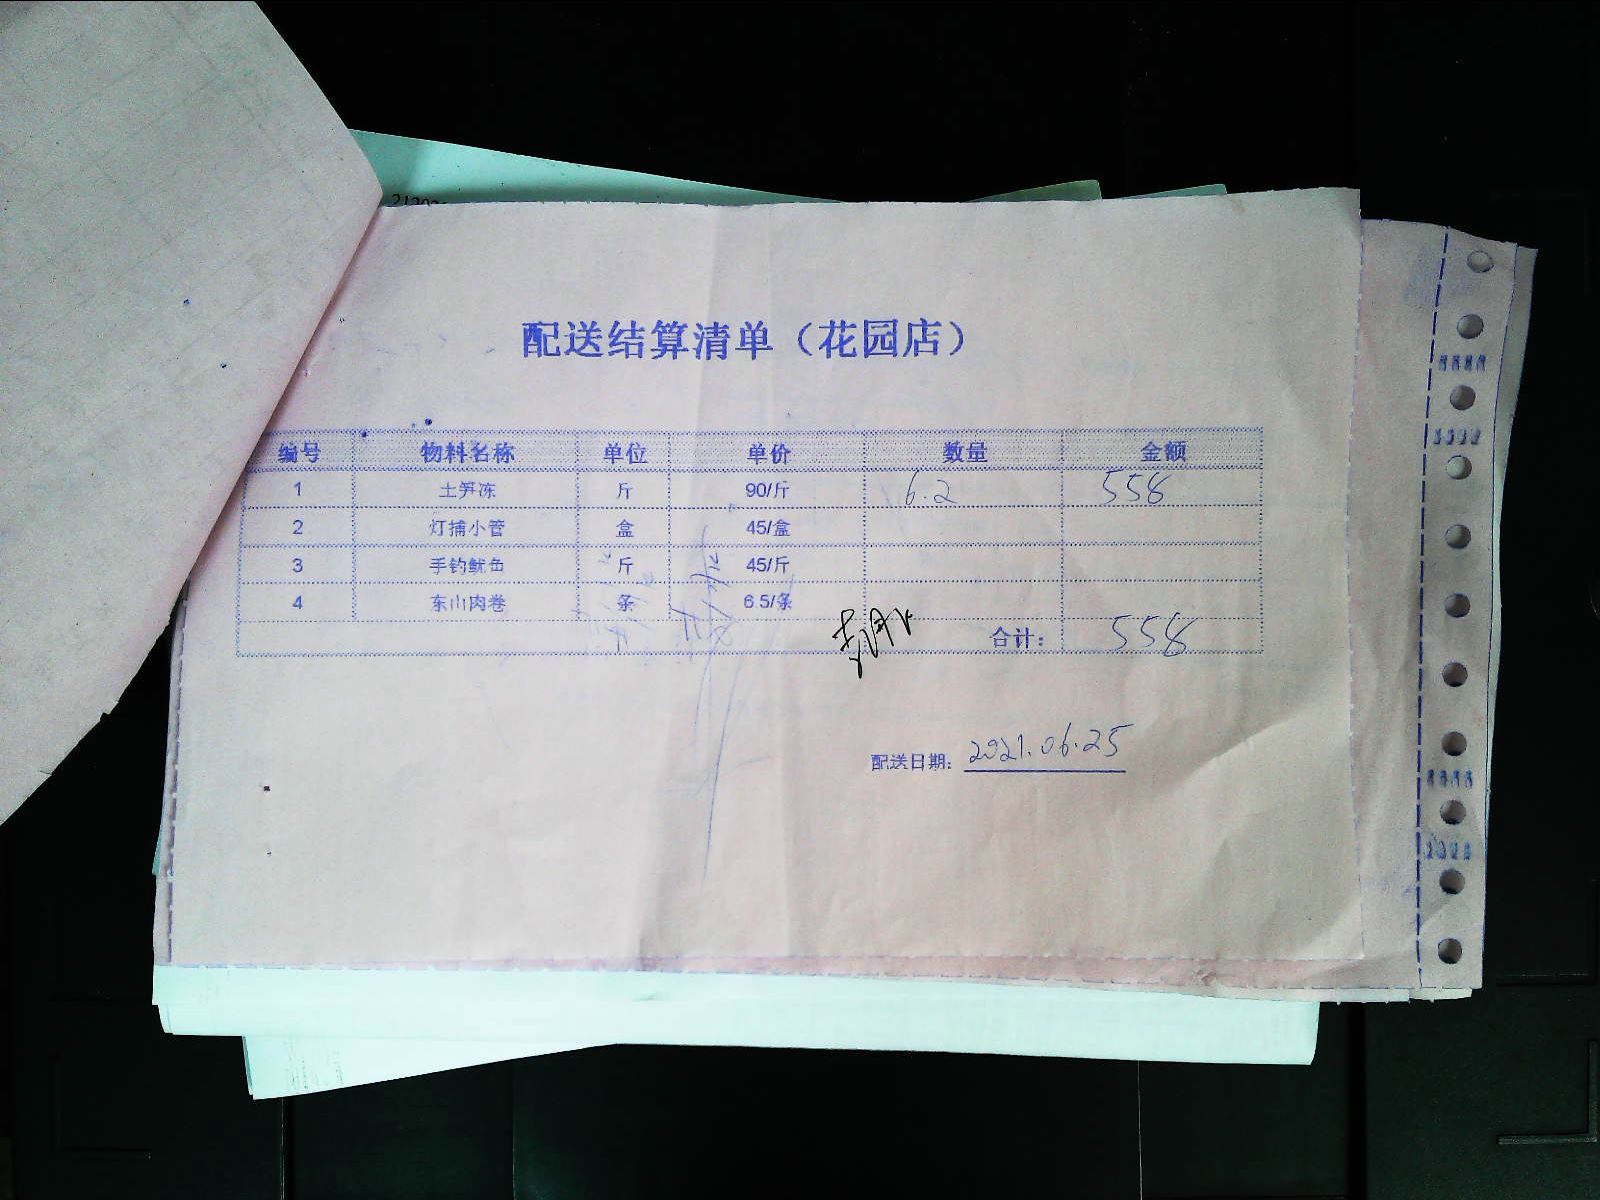 配送结算清单（花园店）
编号 物料名称 单位 单价 数量 金额
1 土笋冻 斤 90/斤 6.2 558
2 灯捕小管 盒 45/盒
3 手钓鱿鱼 斤 45/斤
4 东山肉卷 条 6.5/条
合计： 558
配送日期： 2021.06.25